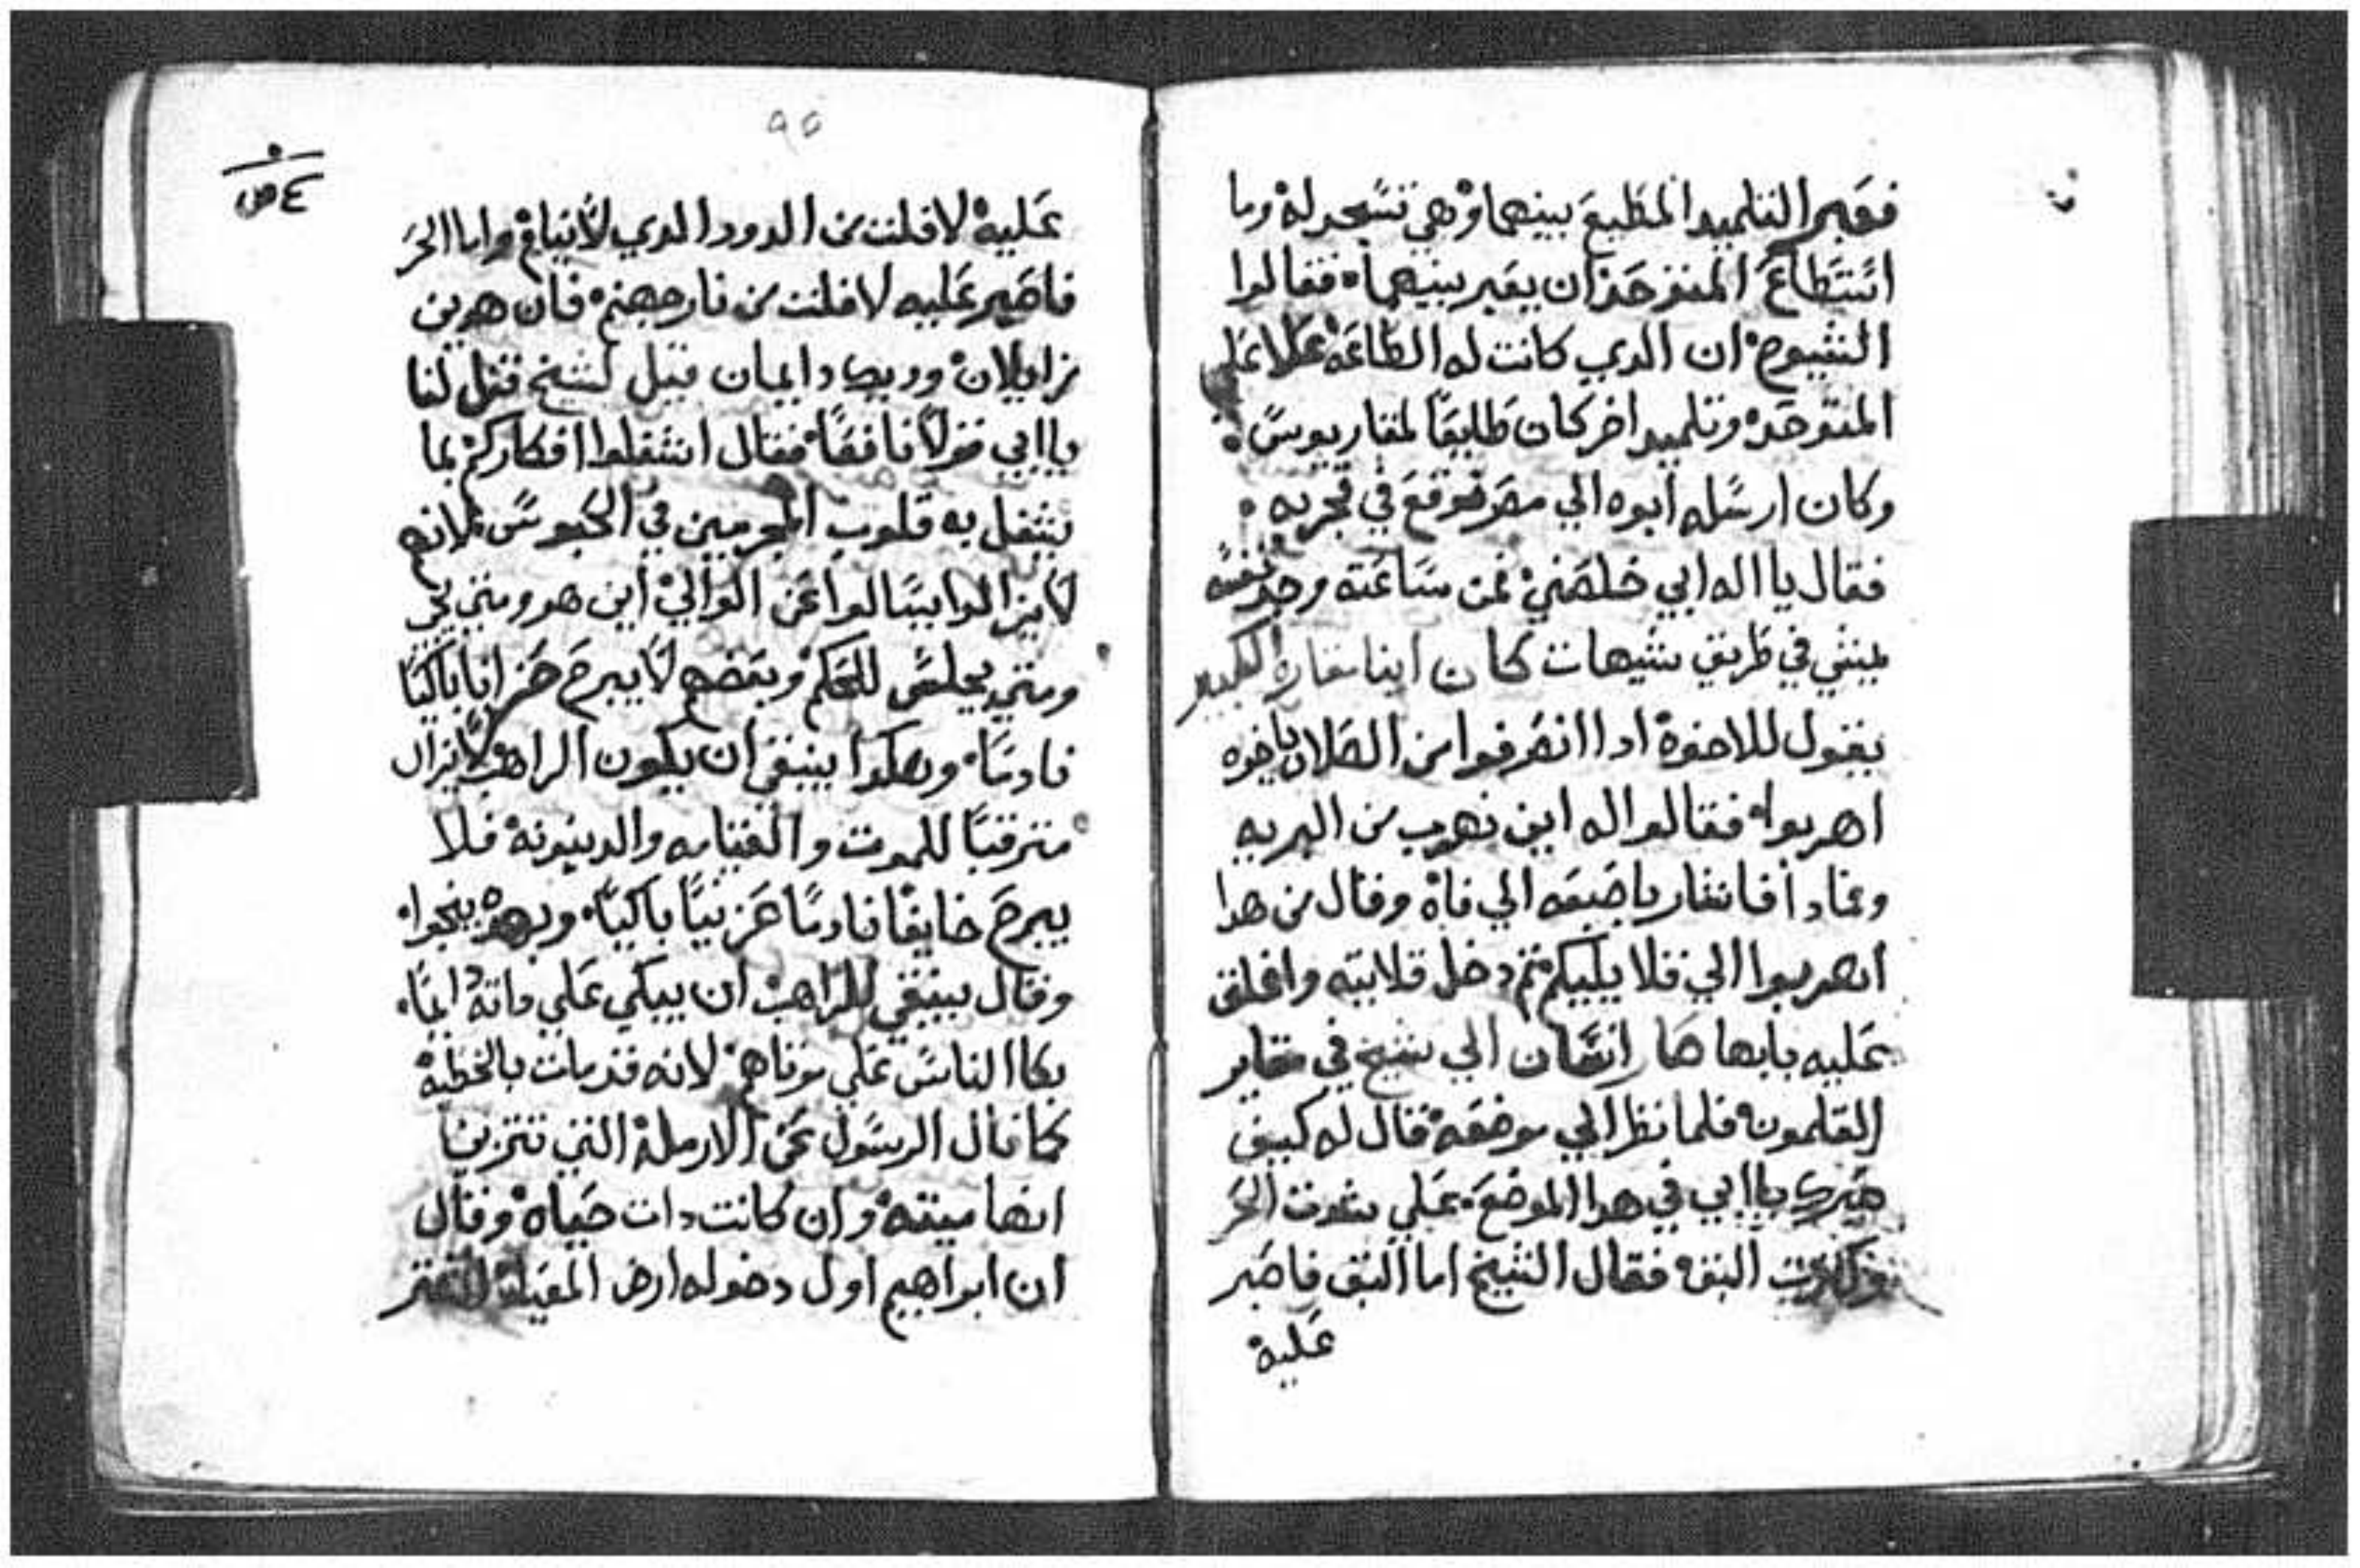 فعبر التلميد المطيع بينهما وهي تسجد له وما
استطاع المتوحد ان يعبر بينهما فقالوا
الشيوخ ان الدي كانت له الطاعة علا علي
المتوحد وتلميد اخر كان طايعًا لمقاريوس
وكان ارسله ابوه الي مصر فوقع في تجربه
فقال يا اله ابي خلصني فمن ساعته وجد نفسه
يمشي في طريق شيهات كان ابنا مقاره الكبير
يقول للاخوة ادا انصرفوا من الصلاه يا اخوه
اهربوا فقالوا له اين نهرب من البريه
وعاد فاشار باصبعه الي فاه وقال من هدا
اهربوا الي قلاليكم تم دخل قلايته واغلق
عليه بابها انسان الي شيخ في مقابر
القلمون فلما نظر الي موضعه قال له كيف
صبرك يا ابي في هدا الموضع علي شدت الحر
وكترت البق فقال الشيخ اما البق فاصبر
عليه
٩٥
عليه لافلت من الدود الدي لا ينام واما الحر
فاصبر عليه لافلت من نار جهنم فان هدين
زايلان ودينك دايمان قيل لشيخ قل لنا
يا ابي قولًا نافعًا فقال اشغلوا افكاركم بما
يشغل به قلوب المجرمين في الحبوس لانهم
لا يزالوا يسالوا عن الوالي اين هو ومتي يجي
ومتي يجلس للحكم وبعضهم لا يبرح حزانا باكيًا
نادمًا وهكدا ينبغي ان يكون الراهب لا يزال
مترقبًا للموت والقيامه والدينونه فلا
يبرح خايفًا نادمًا حزينًا باكيًا وبهده ينجوا
وقال ينبغي للراهب ان يبكي علي داته ايمًا
بكا الناس علي موتاهم لانه قد مات بالخطية
كما قال الرسول عن الارملة التي تتزين
انها ميته وان كانت دات حياة وقال
ان ابراهيم اول دخوله ارض